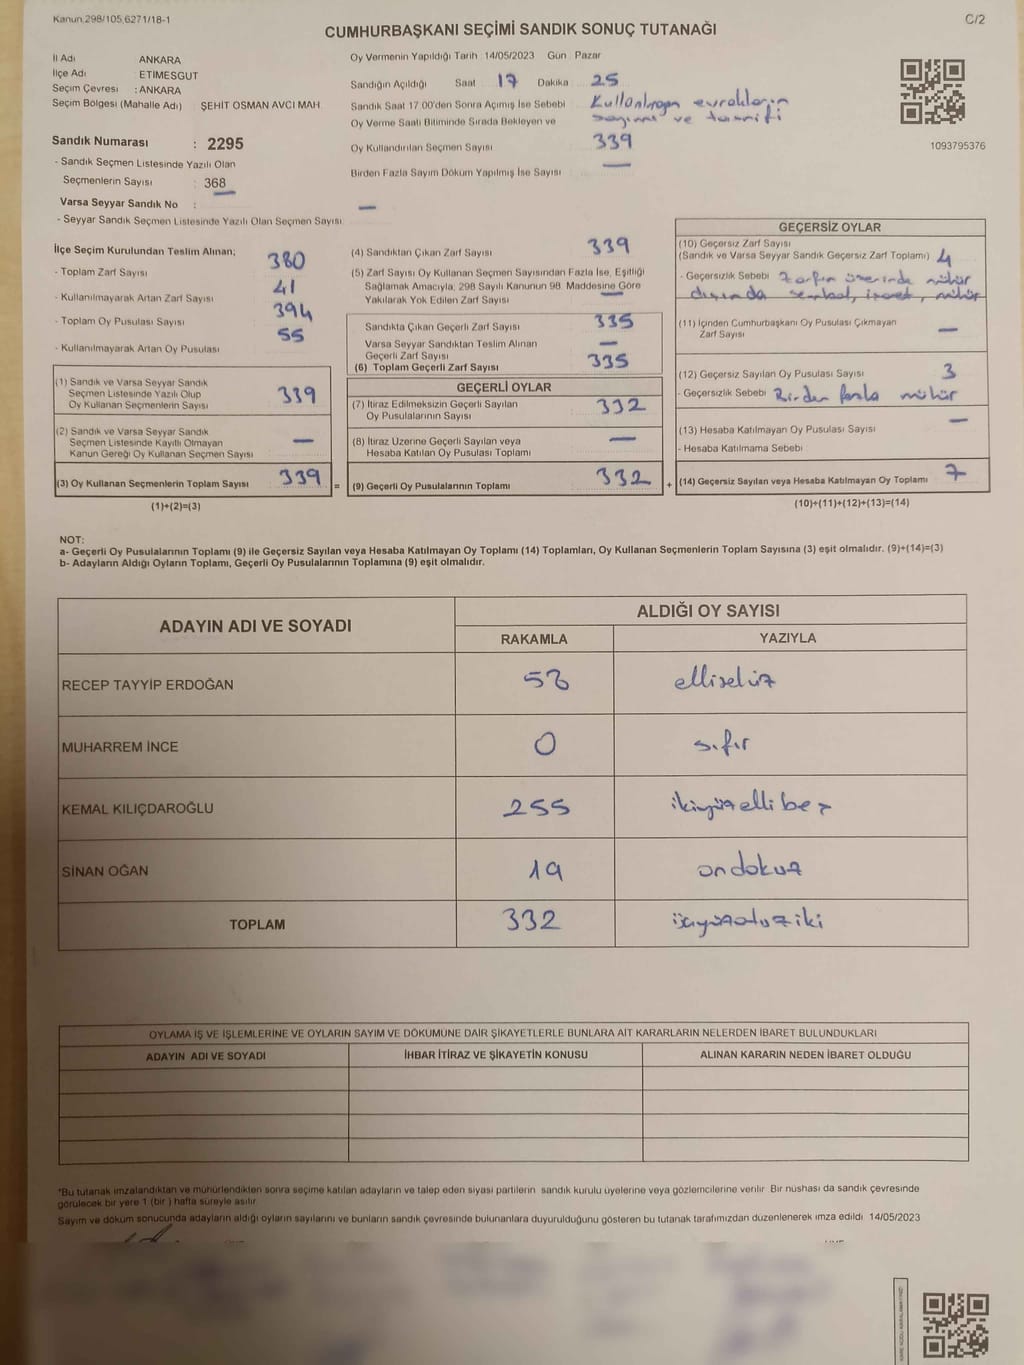 Kanun 298/105,6271/18-1
C/2
CUMHURBAŞKANI SEÇİMİ SANDIK SONUÇ TUTANAĞI
İl Adı ANKARA
İlçe Adı : ETİMESGUT
Seçim Çevresi : ANKARA
Seçim Bölgesi (Mahalle Adı) ŞEHİT OSMAN AVCI MAH
Sandık Numarası : 2295
- Sandık Seçmen Listesinde Yazılı Olan
Seçmenlerin Sayısı : 368
Varsa Seyyar Sandık No : —
- Seyyar Sandık Seçmen Listesinde Yazılı Olan Seçmen Sayısı
Oy Vermenin Yapıldığı Tarih 14/05/2023 Gün Pazar
Sandığın Açıldığı Saat 17 Dakika 25
Sandık Saat 17.00'den Sonra Açılmış İse Sebebi Kullanılmayan evrakların
sayımı ve tasnifi
Oy Verme Saati Bitiminde Sırada Bekleyen ve
Oy Kullandırılan Seçmen Sayısı 339
Birden Fazla Sayım Döküm Yapılmış İse Sayısı —
1093795376
İlçe Seçim Kurulundan Teslim Alınan;
- Toplam Zarf Sayısı 380
- Kullanılmayarak Artan Zarf Sayısı 41
- Toplam Oy Pusulası Sayısı 394
- Kullanılmayarak Artan Oy Pusulası 55
(1) Sandık ve Varsa Seyyar Sandık
Seçmen Listesinde Yazılı Olup
Oy Kullanan Seçmenlerin Sayısı 339
(2) Sandık ve Varsa Seyyar Sandık
Seçmen Listesinde Kayıtlı Olmayan
Kanun Gereği Oy Kullanan Seçmen Sayısı —
(3) Oy Kullanan Seçmenlerin Toplam Sayısı 339 =
(1)+(2)=(3)
(4) Sandıktan Çıkan Zarf Sayısı 339
(5) Zarf Sayısı Oy Kullanan Seçmen Sayısından Fazla İse, Eşitliği
Sağlamak Amacıyla, 298 Sayılı Kanunun 98. Maddesine Göre
Yakılarak Yok Edilen Zarf Sayısı —
Sandıkta Çıkan Geçerli Zarf Sayısı 335
Varsa Seyyar Sandıktan Teslim Alınan
Geçerli Zarf Sayısı —
(6) Toplam Geçerli Zarf Sayısı 335
GEÇERLİ OYLAR
(7) İtiraz Edilmeksizin Geçerli Sayılan
Oy Pusulalarının Sayısı 332
(8) İtiraz Üzerine Geçerli Sayılan veya
Hesaba Katılan Oy Pusulası Toplamı —
(9) Geçerli Oy Pusulalarının Toplamı 332 +
GEÇERSİZ OYLAR
(10) Geçersiz Zarf Sayısı
(Sandık ve Varsa Seyyar Sandık Geçersiz Zarf Toplamı) 4
- Geçersizlik Sebebi Zarfın üzerinde mühür
dışında sembol, işaret, mühür
(11) İçinden Cumhurbaşkanı Oy Pusulası Çıkmayan
Zarf Sayısı —
(12) Geçersiz Sayılan Oy Pusulası Sayısı 3
- Geçersizlik Sebebi Birden fazla mühür
(13) Hesaba Katılmayan Oy Pusulası Sayısı —
- Hesaba Katılmama Sebebi
(14) Geçersiz Sayılan veya Hesaba Katılmayan Oy Toplamı 7
(10)+(11)+(12)+(13)=(14)
NOT:
a- Geçerli Oy Pusulalarının Toplamı (9) ile Geçersiz Sayılan veya Hesaba Katılmayan Oy Toplamı (14) Toplamları, Oy Kullanan Seçmenlerin Toplam Sayısına (3) eşit olmalıdır. (9)+(14)=(3)
b- Adayların Aldığı Oyların Toplamı, Geçerli Oy Pusulalarının Toplamına (9) eşit olmalıdır.
ADAYIN ADI VE SOYADI
ALDIĞI OY SAYISI
RAKAMLA YAZIYLA
RECEP TAYYİP ERDOĞAN 58 ellisekiz
MUHARREM İNCE 0 sıfır
KEMAL KILIÇDAROĞLU 255 ikiyüzellibeş
SİNAN OĞAN 19 ondokuz
TOPLAM 332 üçyüzotuziki
OYLAMA İŞ VE İŞLEMLERİNE VE OYLARIN SAYIM VE DÖKÜMÜNE DAİR ŞİKAYETLERLE BUNLARA AİT KARARLARIN NELERDEN İBARET BULUNDUKLARI
ADAYIN ADI VE SOYADI İHBAR İTİRAZ VE ŞİKAYETİN KONUSU ALINAN KARARIN NEDEN İBARET OLDUĞU
*Bu tutanak imzalandıktan ve mühürlendikten sonra seçime katılan adayların ve talep eden siyasi partilerin sandık kurulu üyelerine veya gözlemcilerine verilir. Bir nüshası da sandık çevresinde
görülecek bir yere 1 (bir) hafta süreyle asılır.
Sayım ve döküm sonucunda adayların aldığı oyların sayılarını ve bunların sandık çevresinde bulunanlara duyurulduğunu gösteren bu tutanak tarafımızdan düzenlenerek imza edildi 14/05/2023